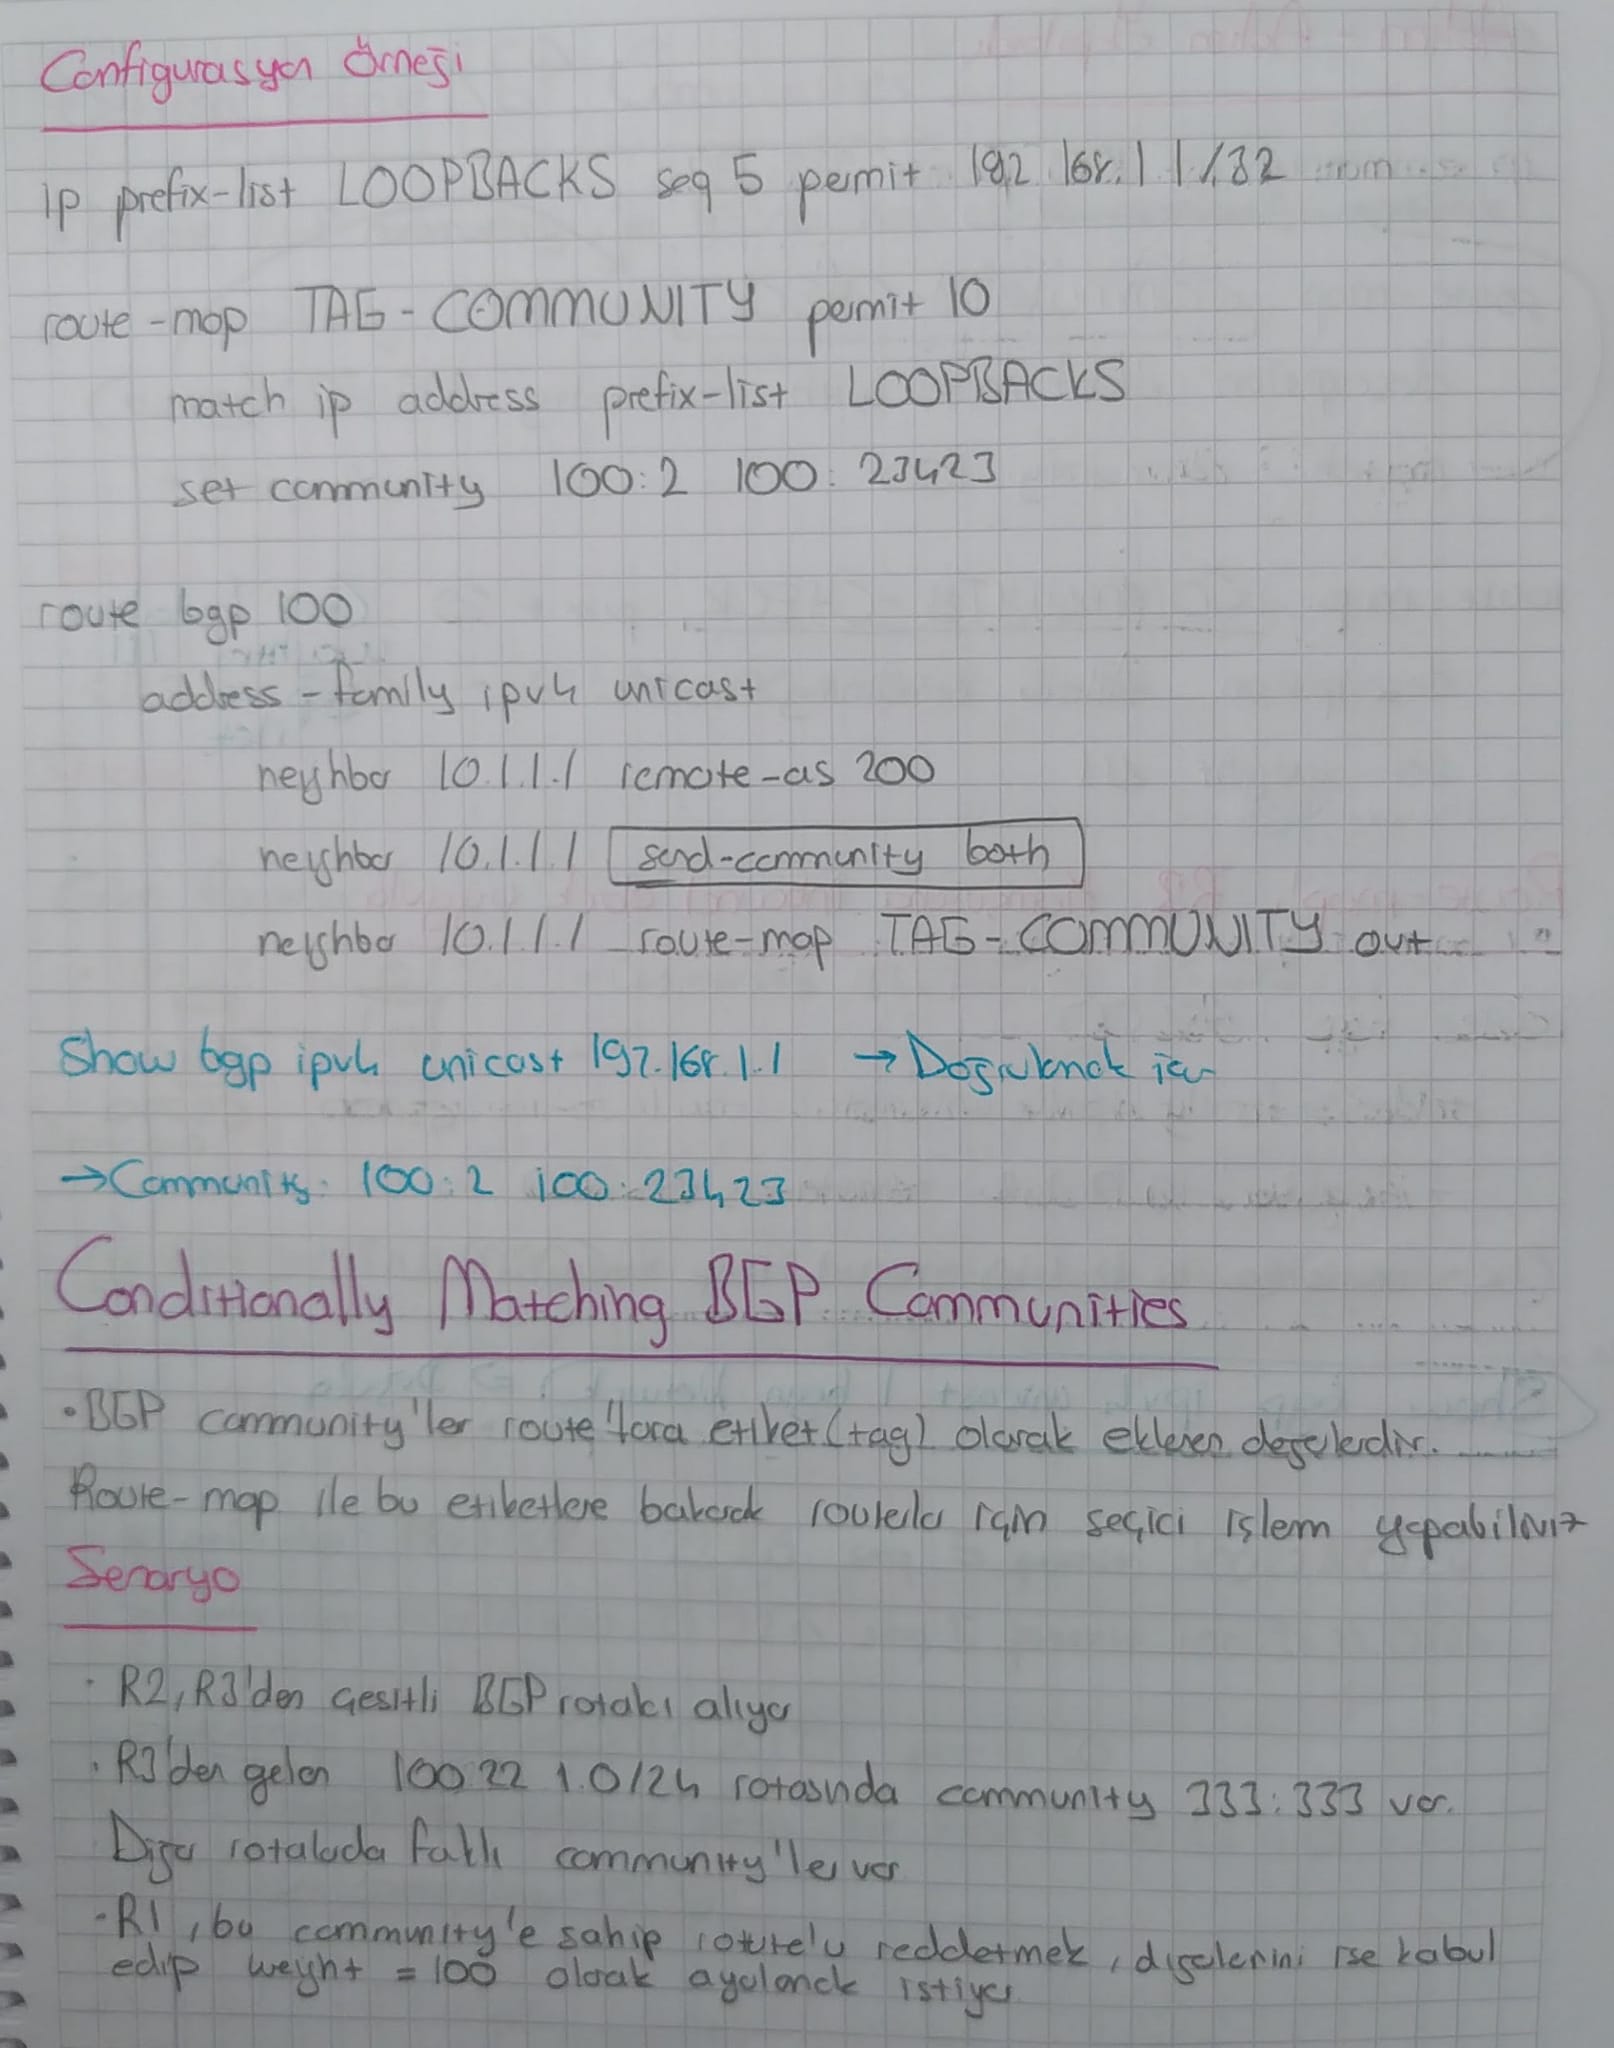 Configurasyon Örneği
ip prefix-list LOOPBACKS seq 5 permit 192.168.1.1/32
route-map TAG-COMMUNITY permit 10
match ip address prefix-list LOOPBACKS
set community 100:2 100:23423
route bgp 100
address-family ipv4 unicast
neighbor 10.1.1.1 remote-as 200
neighbor 10.1.1.1 send-community both
neighbor 10.1.1.1 route-map TAG-COMMUNITY out
Show bgp ipv4 unicast 192.168.1.1 → Doğrulamak için
→Community: 100:2 100:23423
Conditionally Matching BGP Communities
•BGP community'ler route'lara etiket (tag) olarak eklenen değerlerdir.
Route-map ile bu etiketlere bakarak routelar için seçici işlem yapabiliriz
Senaryo
· R2, R3'den çeşitli BGP rotaları alıyor
· R3'den gelen 100.22.1.0/24 rotasında community 333:333 var.
Diğer rotalarda farklı community'ler var
-R1, bu community'e sahip route'u reddetmek, diğerlerini ise kabul
edip weight = 100 olarak ayarlamak istiyor